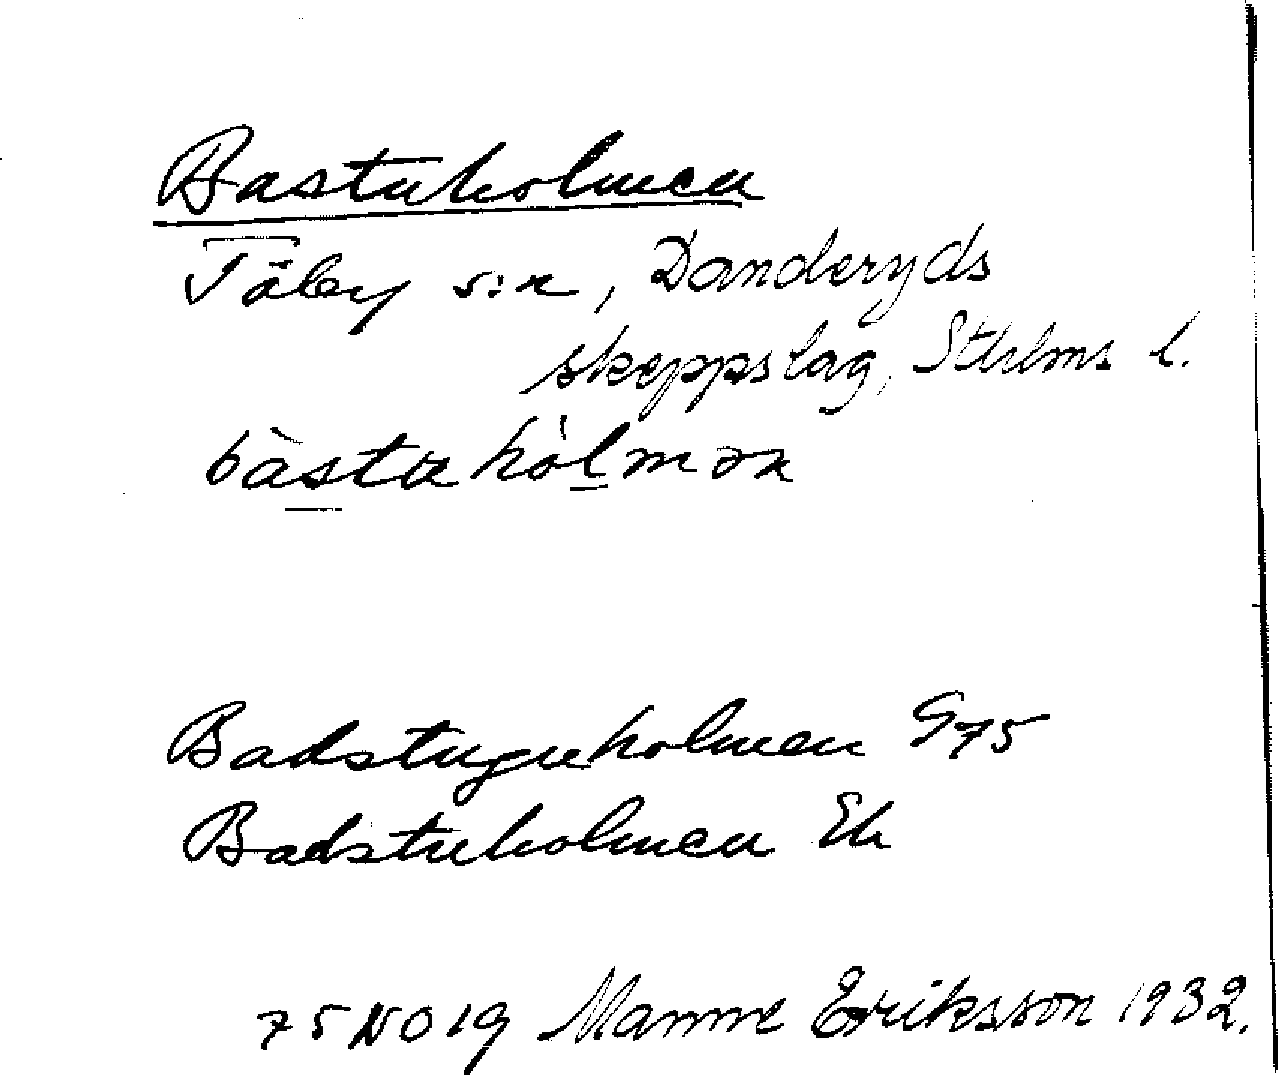 Bastuholmen
Täby sn, Danderyds
skeppslag, Sthlms l.
bàstu hòlmən
Badstuguholmen G75
Badstuholmen Ek
75 NO 19 Manne Eriksson 1932.